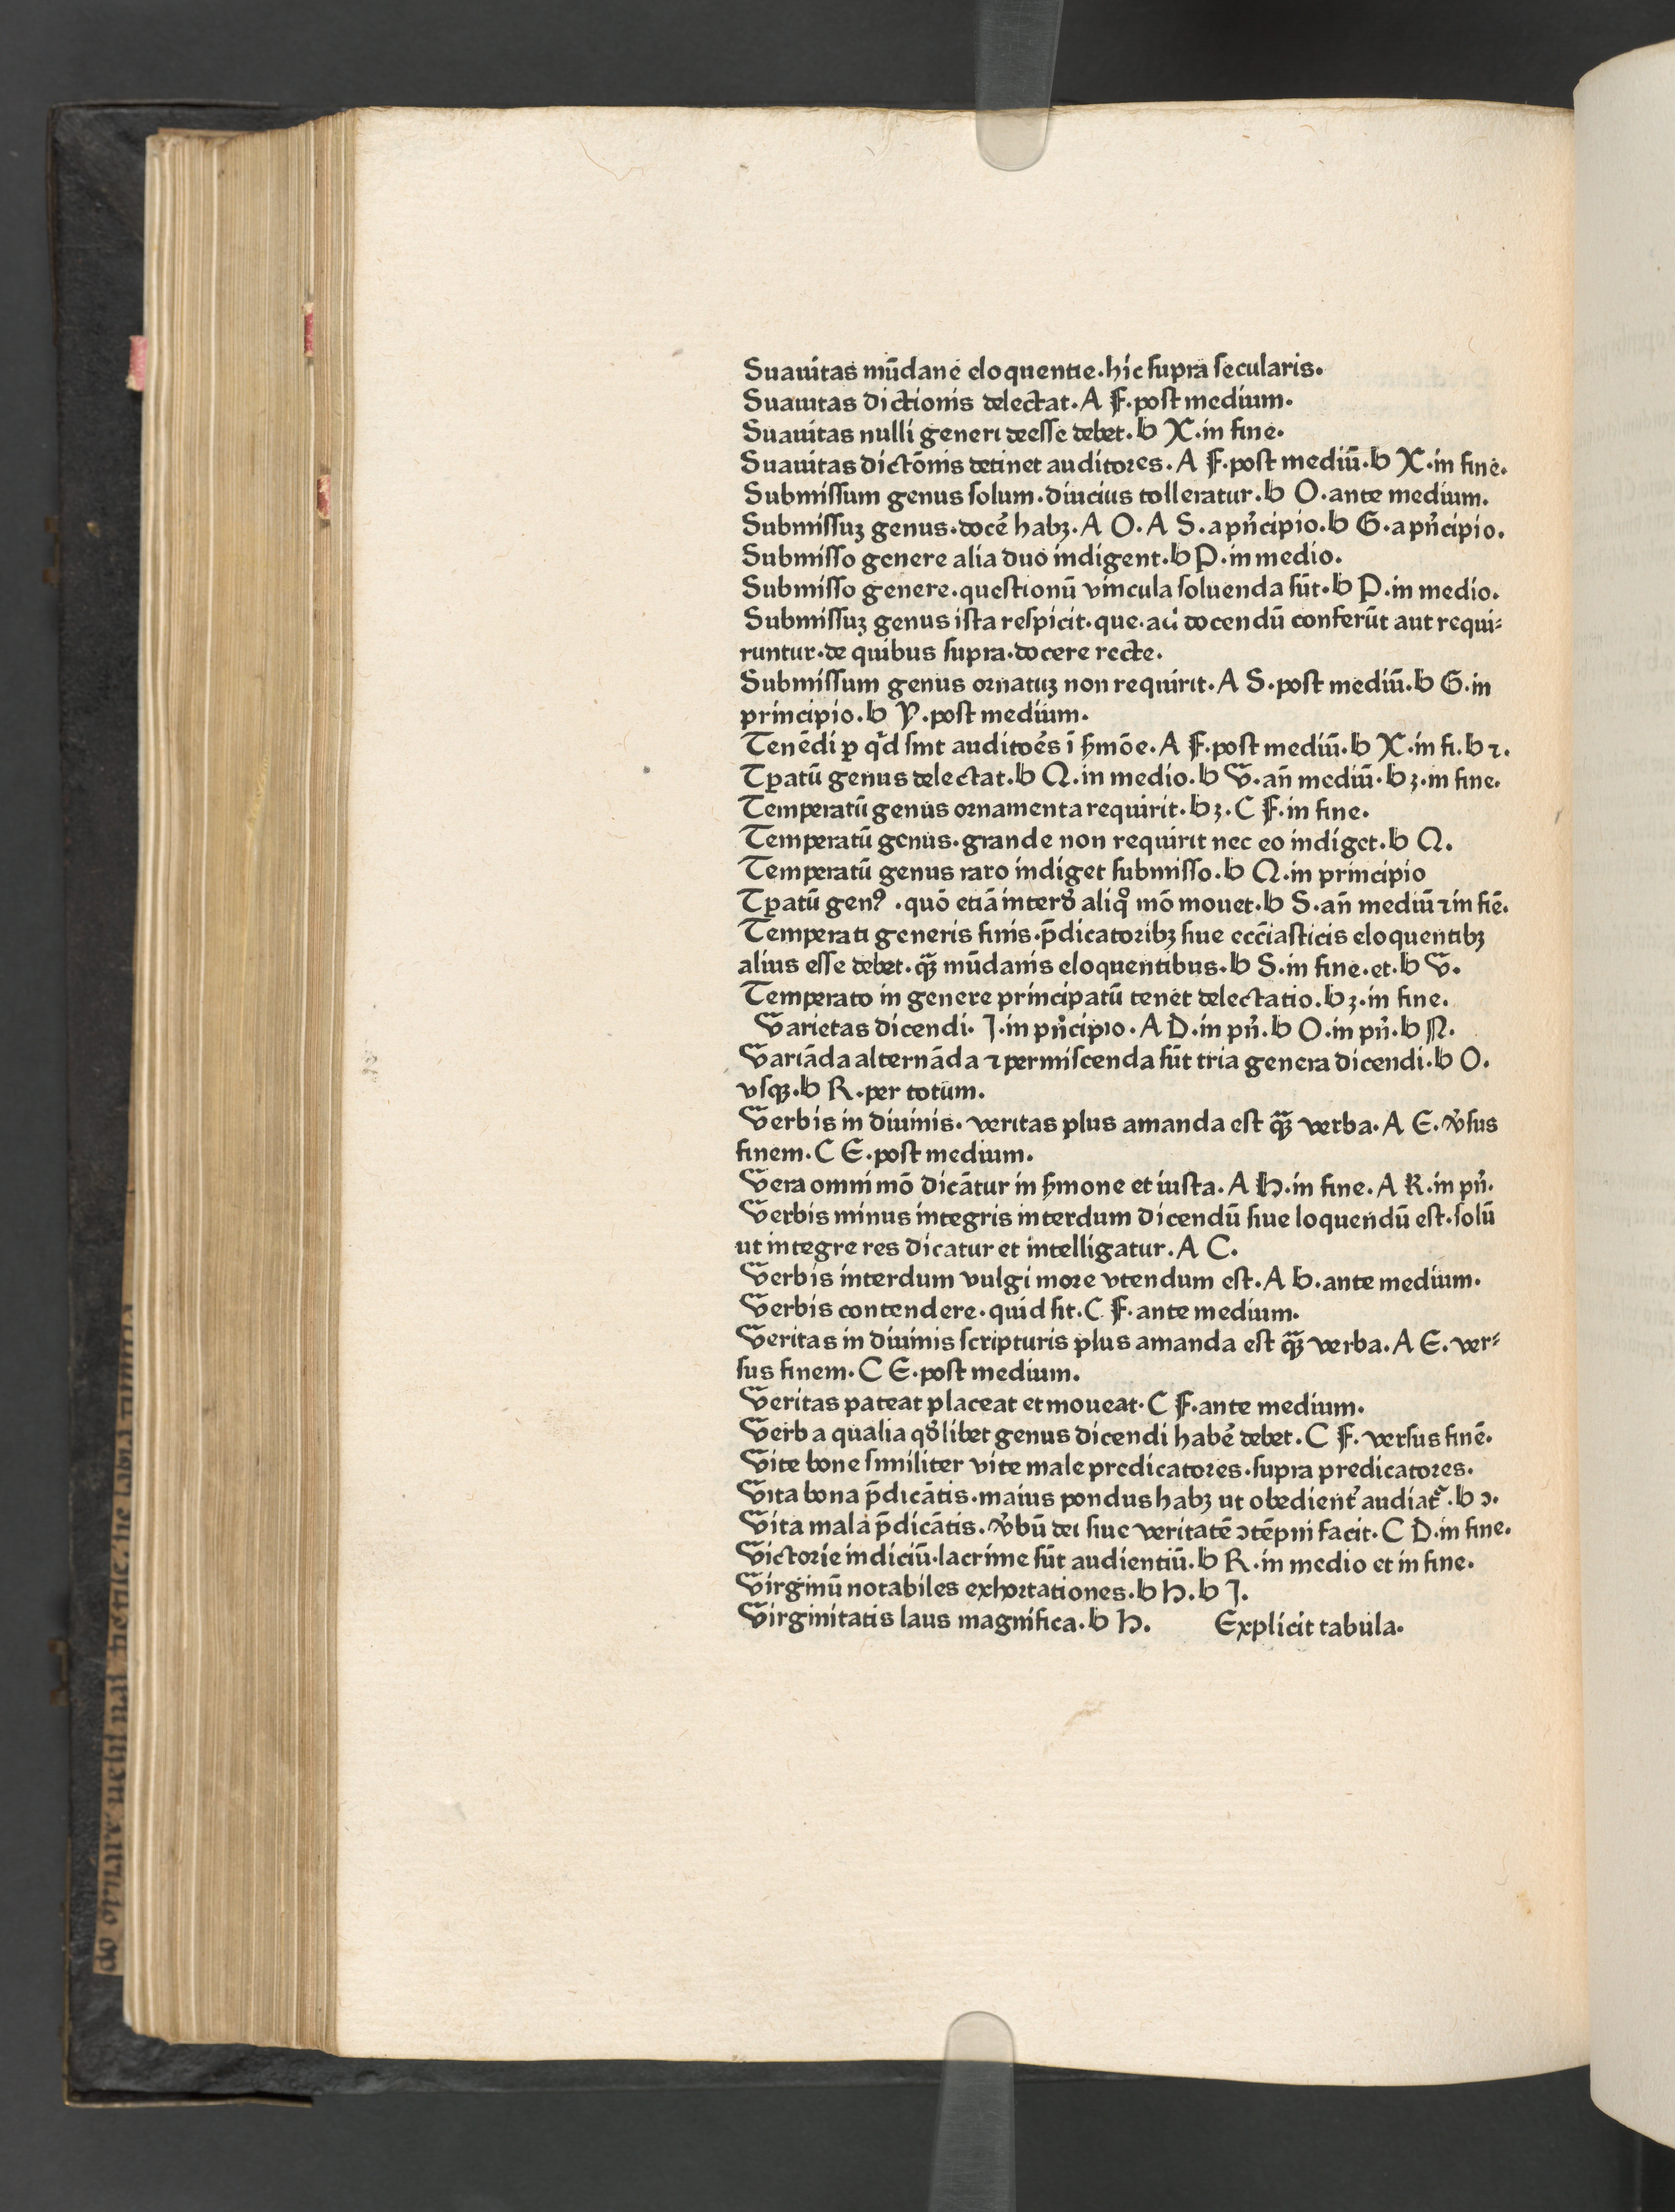 Suauitas mūdane eloquentie.hic supra secularis.
Suauitas dictionis delectat.A F.post medium.
Suauitas nulli generi deesse debet.b X.in fine.
Suauitas dictōnis detinet auditores.A F.post mediū.b X.in fine.
Submissum genus solum.diucius tolleratur.b O.ante medium.
Submissuꝫ genus.docē habꝫ.A O.A S.a pñcipio.b G.a pñcipio.
Submisso genere alia duo indigent.b P.in medio.
Submisso genere.questionū vincula soluenda sūt.b P.in medio.
Submissuꝫ genus ista respicit.que.ad docendū conferūt aut requi⸗
runtur.de quibus supra.docere recte.
Submissum genus ornatuꝫ non requirit.A S.post mediū.b G.in
principio.b Y.post medium.
Tenēdi ꝑ qd sint auditoēs ī ẜmōe.A F.post mediū.b X.in fi.b ⁊.
Tꝑatū genus delectat.b Q.in medio.b V.añ mediū.b ꝫ.in fine.
Temperatū genus ornamenta requirit.b ꝫ.C F.in fine.
Temperatū genus.grande non requirit nec eo indiget.b Q.
Temperatū genus raro indiget submisso.b Q.in principio
Tꝑatū genꝰ.quō etiā interd aliqͦ mō mouet.b S.añ mediū ⁊ in fiē.
Temperati generis finis.p̄dicatoribꝫ siue ecciasticis eloquentibꝫ
alius esse debet.qͣꝫ mūdanis eloquentibus.b S.in fine.et.b V.
Temperato in genere principatū tenet delectatio.b ꝫ.in fine.
Varietas dicendi.I.in pñcipio.A D.in pñ.b O.in pñ.b N.
Variāda alternāda ⁊ permiscenda sūt tria genera dicendi.b O.
vsqꝫ.b R.per totum.
Verbis in diuinis.veritas plus amanda est qͣꝫ verba.A E.v̓sus
finem.C E.post medium.
Vera omnimō dicātur in ẜmone et iusta.A H.in fine.A K.in pñ.
Verbis minus integris interdum dicendū siue loquendū est.solū
ut integre res dicatur et intelligatur.A C.
Verbis interdum vulgi more vtendum est.A b.ante medium.
Verbis contendere.quid sit.C F.ante medium.
Veritas in diuinis scripturis plus amanda est qͣꝫ verba.A E.ver⸗
sus finem.C E.post medium.
Veritas pateat placeat et moueat.C F.ante medium.
Verba qualia qdlibet genus dicendi habē debet.C F.versus finē.
Vite bone similiter vite male predicatores.supra predicatores.
Vita bona p̄dicātis.maius pondus habꝫ ut obedient̓ audiat̓.b ɔ.
Vita mala p̄dicātis.v̓bū dei siue veritatē ɔtēpni facit.C D.in fine.
Victorie indiciū.lacrime sūt audientiū.b R.in medio et in fine.
Virginū notabiles exhortationes.b H.b I.
Virginitatis laus magnifica.b H. Explicit tabula.